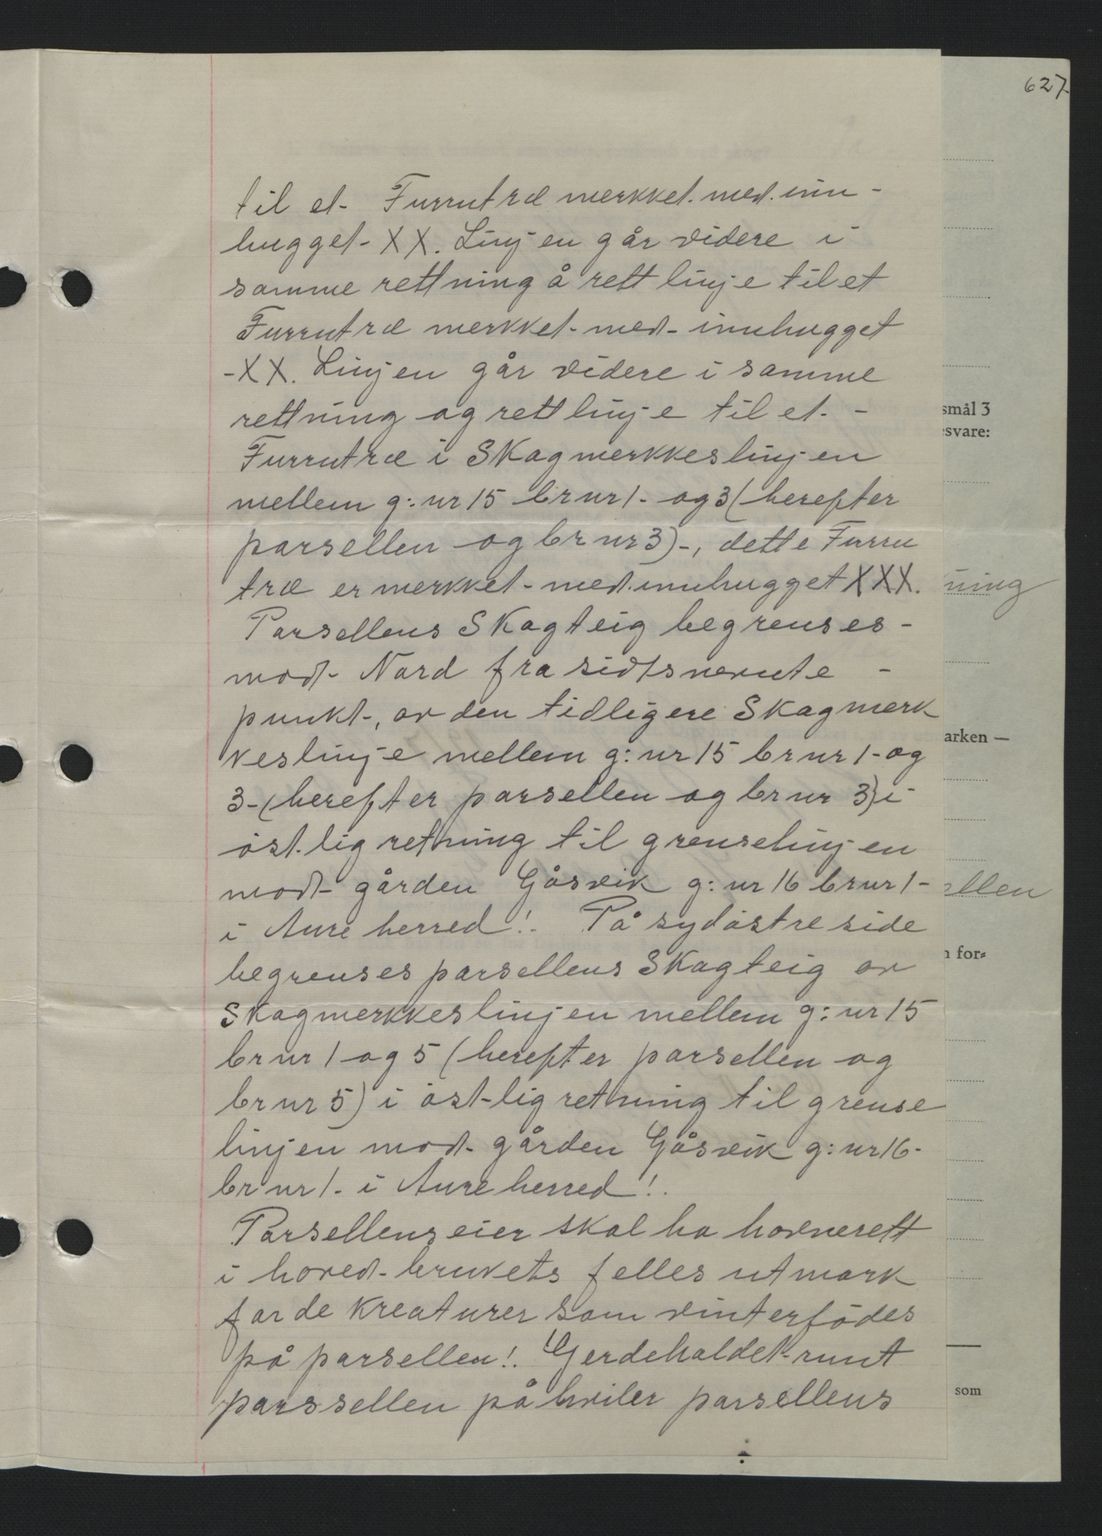 627
til et- Furrutræ merkket. med. inn-
hugget- XX. Linjen går videre i
samme rettning å rett linje til et
Furrutræ merkket- med- innhugget
-XX. Linjen går videre i samme
rettning og rett linje til et. -
Furrutræ i Skogmerkkeslinjen
mellem g: nr 15 br nr 1- og 3 (herefter
parsellen og br nr 3)-, dette Furru
træ er merkket- med. innhugget XXX.
Parsellens Skogteig begrenses-
mod- Nord fra sidtsnevnte -
punkt-, av den tidligere Skogmerk
keslinje mellem g: nr 15 br nr 1- og
3- (herefter parsellen og br nr 3) i
östlig retning til grenselinjen
mod- gården Gåsvik g: nr 16 br nr 1-
i Aure herred!. På sydöstre side
begrenses parsellens Skogteig av
Skogmerkkeslinjen mellem g: nr 15
br nr 1 og 5 (herefter parsellen og
br nr 5) i öst-lig retning til grense
linjen mod- gården Gåsvik g: nr 16-
br nr 1. i Aure herred!.
Parsellens eier skal ha havnerett
i hoved-brukets felles utmark
for de kreaturer som vinterfödes
på parsellen!. Gjerdeholdet- runt
parssellen påhviler parsellens
smål 3
svare:
ning
arken —
ellen
for-
som